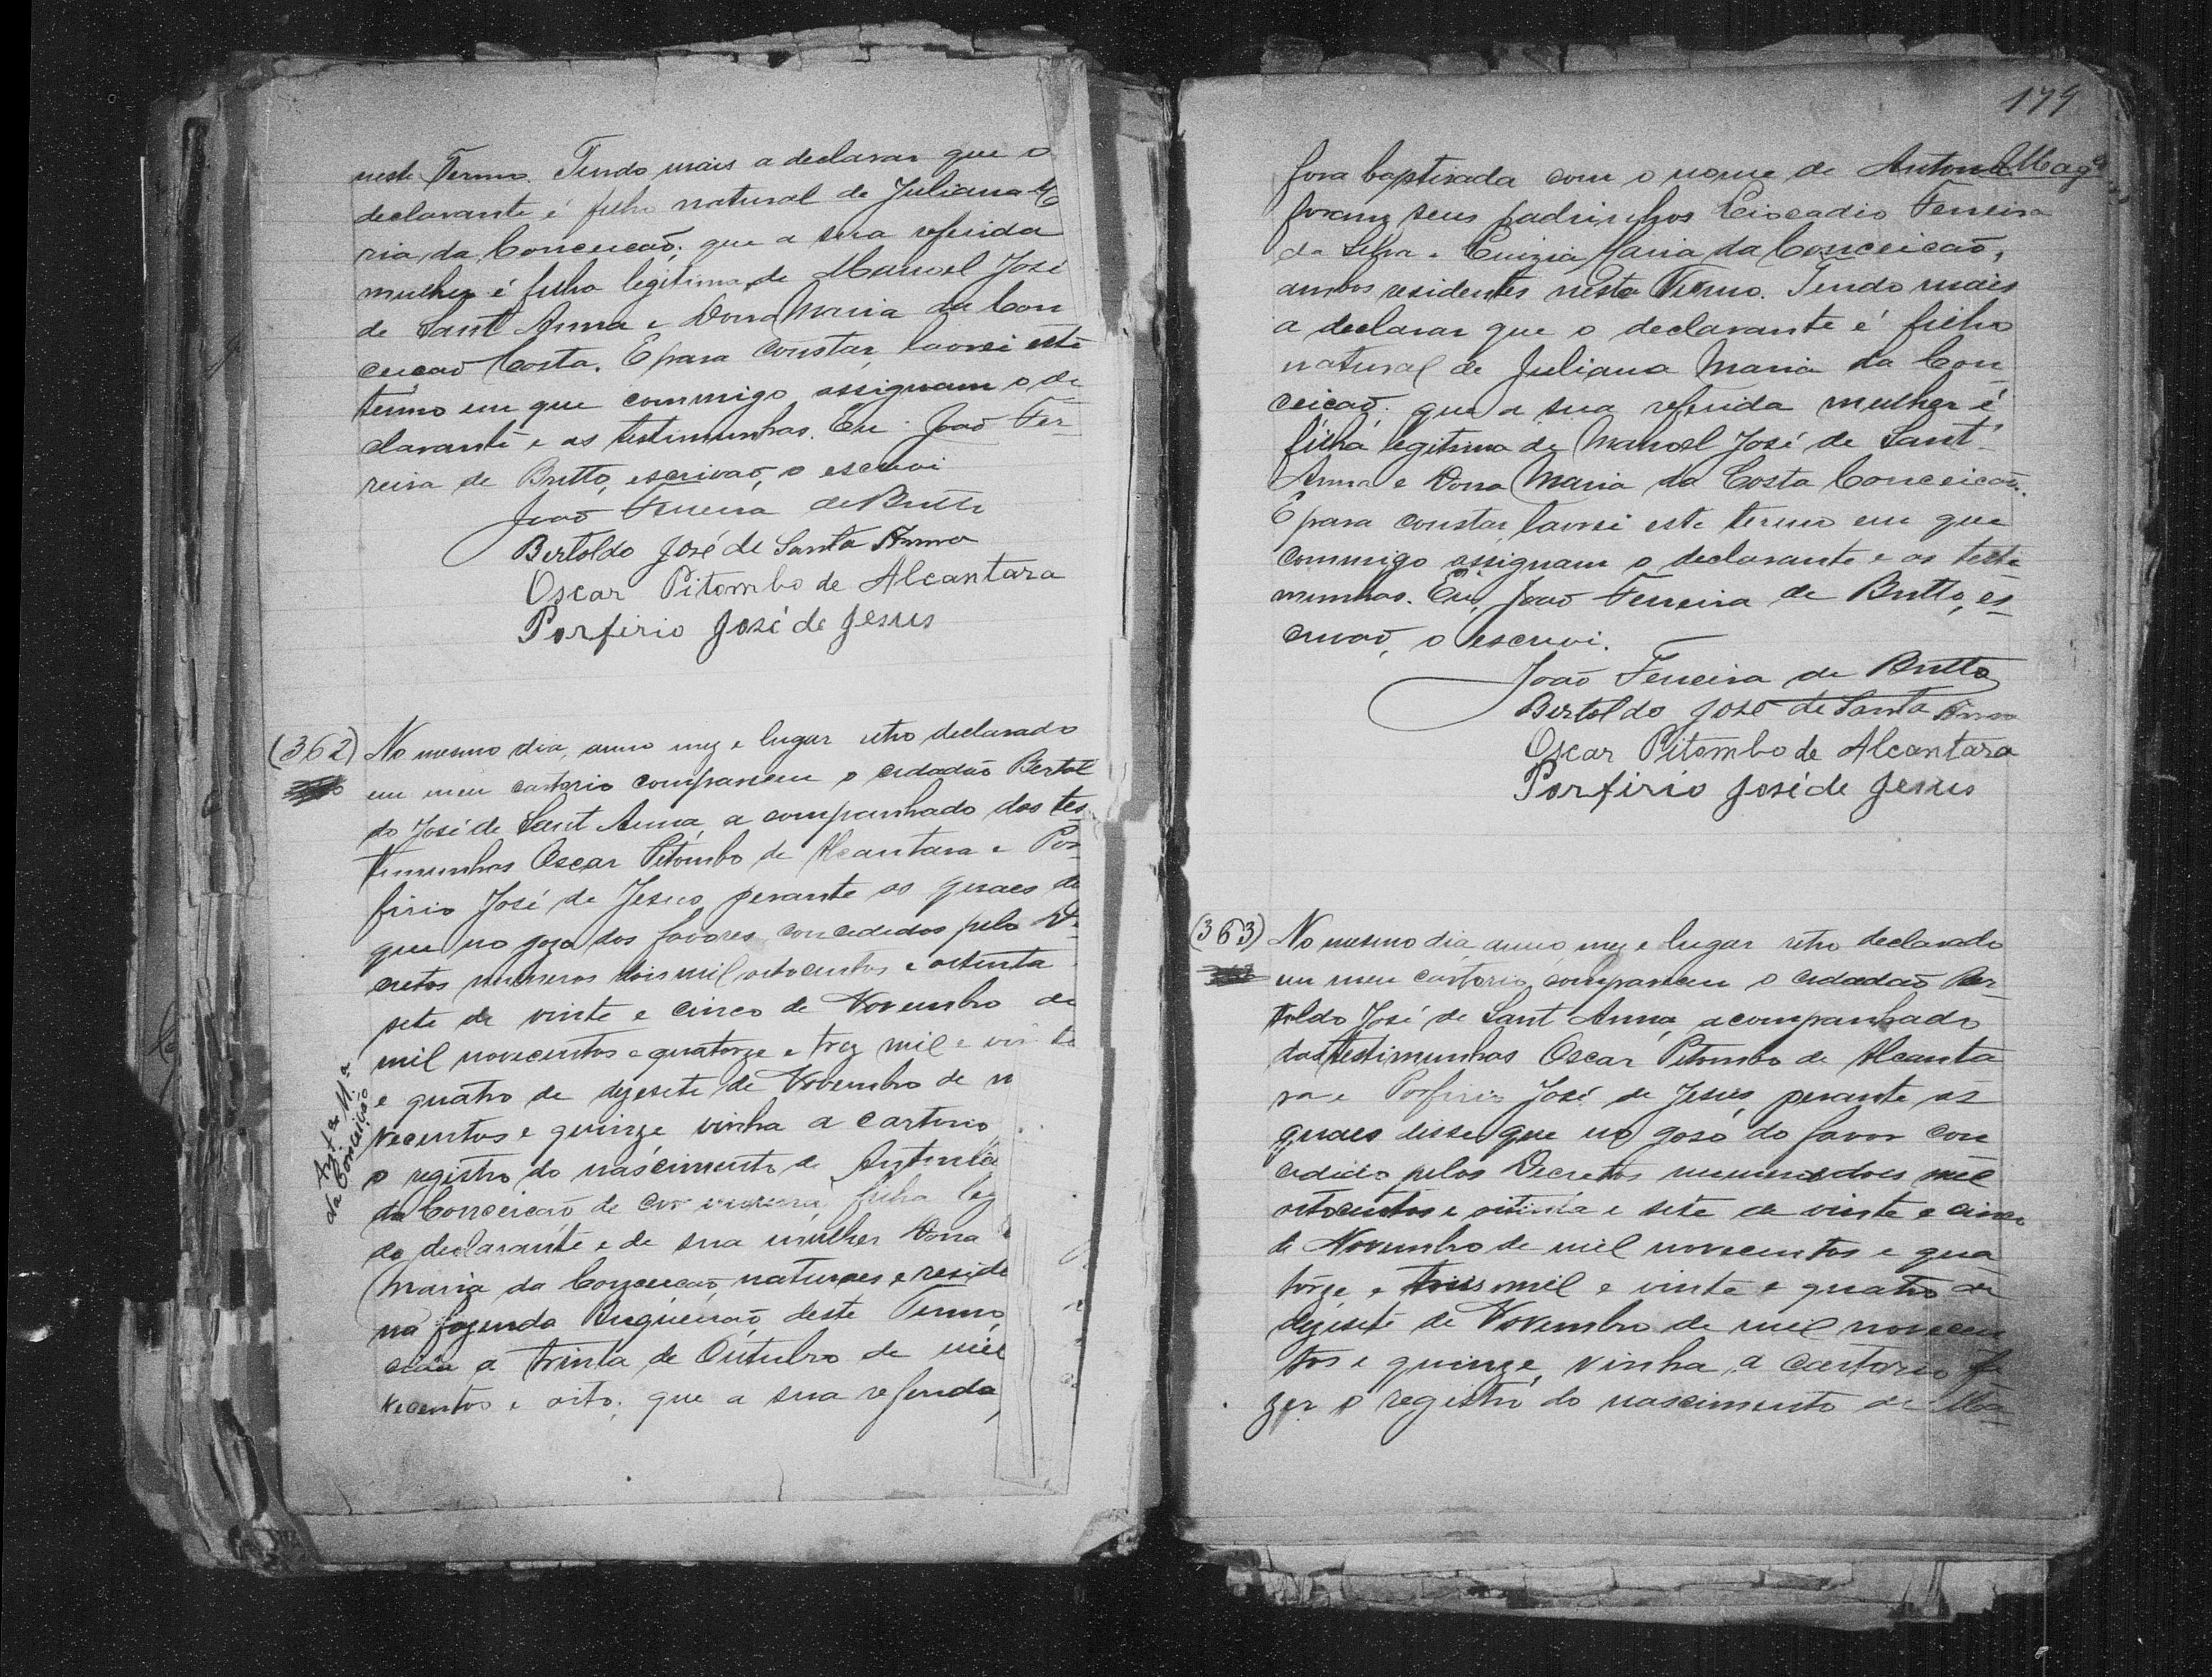 neste Termo. Tendo mais a declarar que o
declarante é filho natural de Juliana Ma
ria da Conceicaõ; que a sua referida
mulher é filha legitima de Manoel José
de Sant Anna e Dona Maria da Con
ceicaõ Costa. E para constar, lavrei este
termo em que commigo assignam o de
clarante e as testimunhas. Eu João Fer-
reira de Britto, escrivaõ, o escrevi
João Ferreira de Britto
Bertoldo José de Santa Anna
Oscar Pitombo de Alcantara
Porfirio José de Jesus
(362) No mesmo dia, anno mez e lugar retro declarado
em meu cartorio compareceu o cidadão Bertol
do José de Sant Anna, a companhado das tes
timunhas Oscar Pitombo de Alcantara e Por-
firio José de Jesus perante as quaes di
que no goza dos favores concedidos pelo De
cretos numeros dois mil oitocentos e oitenta
sete de vinte e cinco de Novembro de
mil novecentos e quatorze e trez mil e vinte
e quatro de dezesete de Novembro de n
vecentos e quinze vinha a cartorio
o registro do nascimento de Antonia
da Conceicaõ de cor filha leg
do declarante e de sua mulher Dona
Maria da Conceicaõ, naturaes e reside
na fazenda deste Termo,
cida a trinta de Outubro de mil
vecentos e oito; que a sua referida
Ant.a M.a
da Conceição
179
fora baptisada com o nome de Antonia Mag.a
foram seus padrinhos Leocadio Ferreira
da Silva e Maria da Conceicaõ,
ambos residentes neste Termo. Tendo mais
a declarar que o declarante é filho
natural de Juliana Maria da Con
ceicaõ; que a sua referida mulher é
filha legitima de Manoel José de Sant
Anna e Dona Maria da Costa Conceicaõ.
E para constar, lavrei este termo em que
commigo assignam o declarante e as teste
munhas. Eu, João Ferreira de Britto, es-
crivaõ, o escrevi.
João Ferreira de Britto
Bertoldo José de Santa Anna
Oscar Pitombo de Alcantara
Porfirio José de Jesus
(363) No mesmo dia, anno, mez e lugar retro declarado
em meu cartorio compareceu o cidadaõ Ber-
toldo José de Sant Anna, acompanhado
das testimunhas Oscar Pitombo de Alcanta
ra e Porfirio José de Jesus, perante as
quaes disse que no goso do favor con
cedido pelos Decretos numeros dois mil
oitocentos e oitenta e sete de vinte e cinco
de Novembro de mil novecentos e qua
torze e tres mil e vinte e quatro de
dezesete de Novembro de mil novecen
tos e quinze, vinha a cartorio fa
zer o registro do nascimento de Ma-